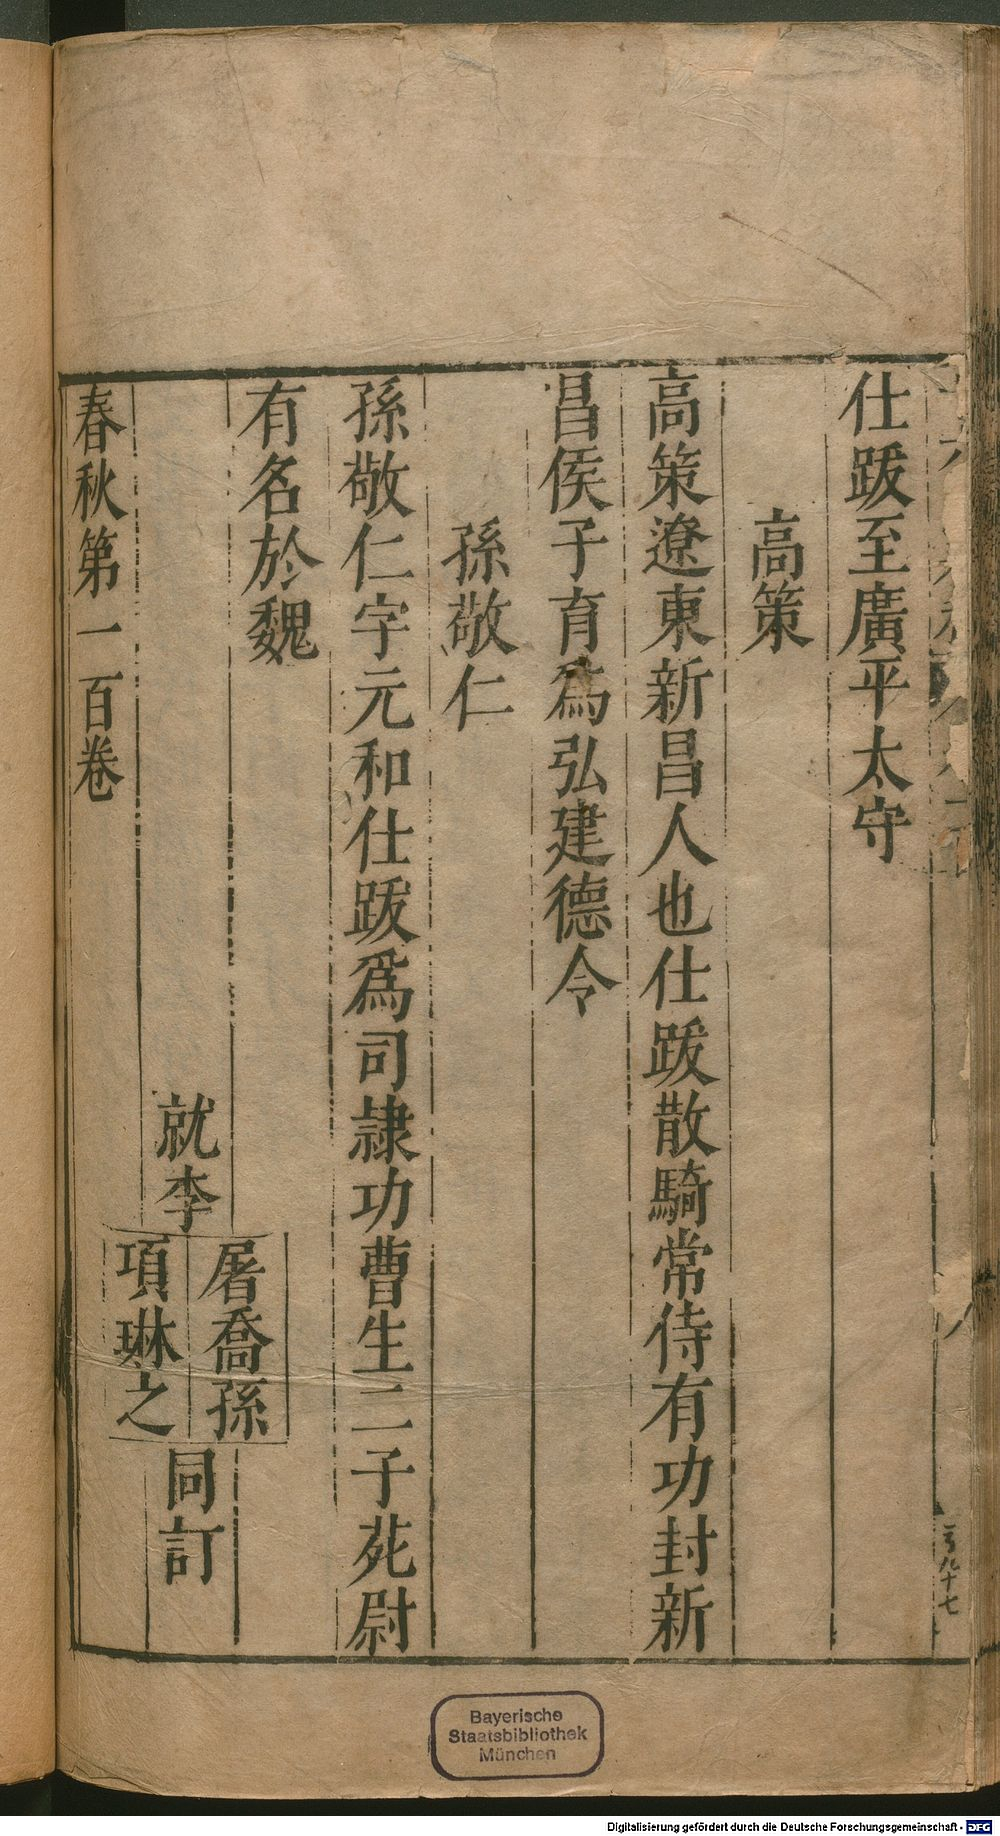 仕跋至廣平太守
高策
高策遼東新昌人也仕跋散騎常侍有功封新
昌侯子育為弘建德令
孫敬仁
孫敬仁字元和仕跋爲司隷功曹生二子苑尉
有名於魏
就李
屠喬孫
項琳之
同訂
春秋第一百卷
Bayerische
Staatsbibliothek
München
Digitalisierung gefördert durch die Deutsche Forschungsgemeinschaft - DFG